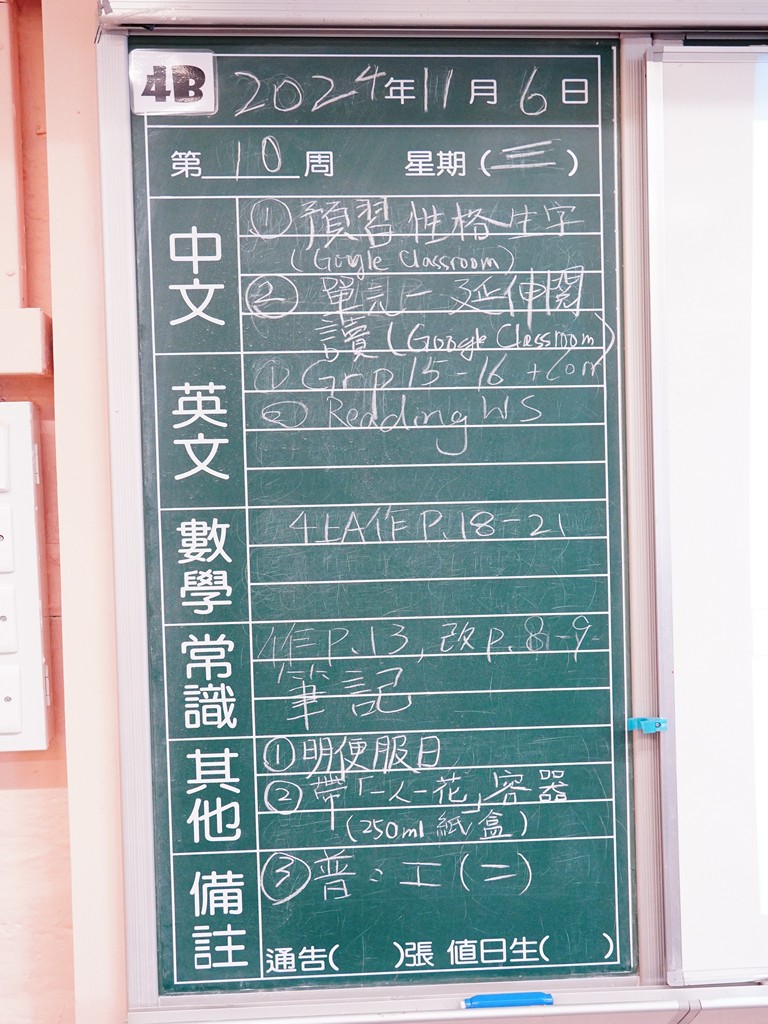 4B 2024年11月6日
第10周 星期(三)
中文
① 預習性格生字
(Google Classroom)
② 單元一延伸閱
讀(Google Classroom)
英文
① Grp 15-16 + Corr
② Reading WS
數學
4上A作P.18-21
常識
作P.13, 改P.8-9
筆記
其他
① 明便服日
② 帶「一人一花」容器
(250ml 紙盒)
備註
③ 普：工(二)
通告( )張 值日生( )